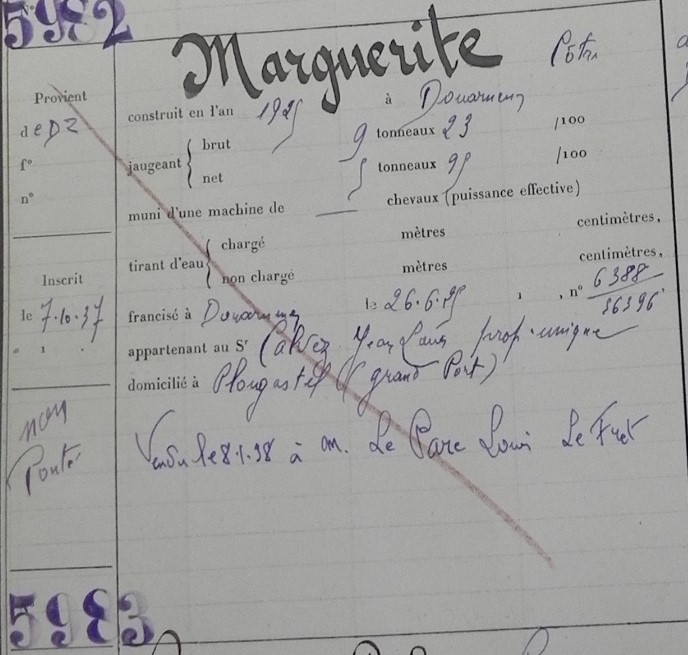 5982
Marguerite
Provient
de DZ
f°
n°
construit en l'an 1925 à Douarnenez
jaugeant { brut 9 tonneaux 23 /100
net 5 tonneaux 95 /100
muni d'une machine de — chevaux (puissance effective)
tirant d'eau { chargé mètres centimètres,
non chargé mètres centimètres,
Inscrit
le 7.10.37
francisé à Douarnenez le 26.6.25 , n° 6388
36396
appartenant au Sr Jean Louis prop. unique
domicilié à Plougastel ( grand Port)
non
Ponté
Vendu le 8.1.38 à M. Le Pare Louis Le Fret
5983